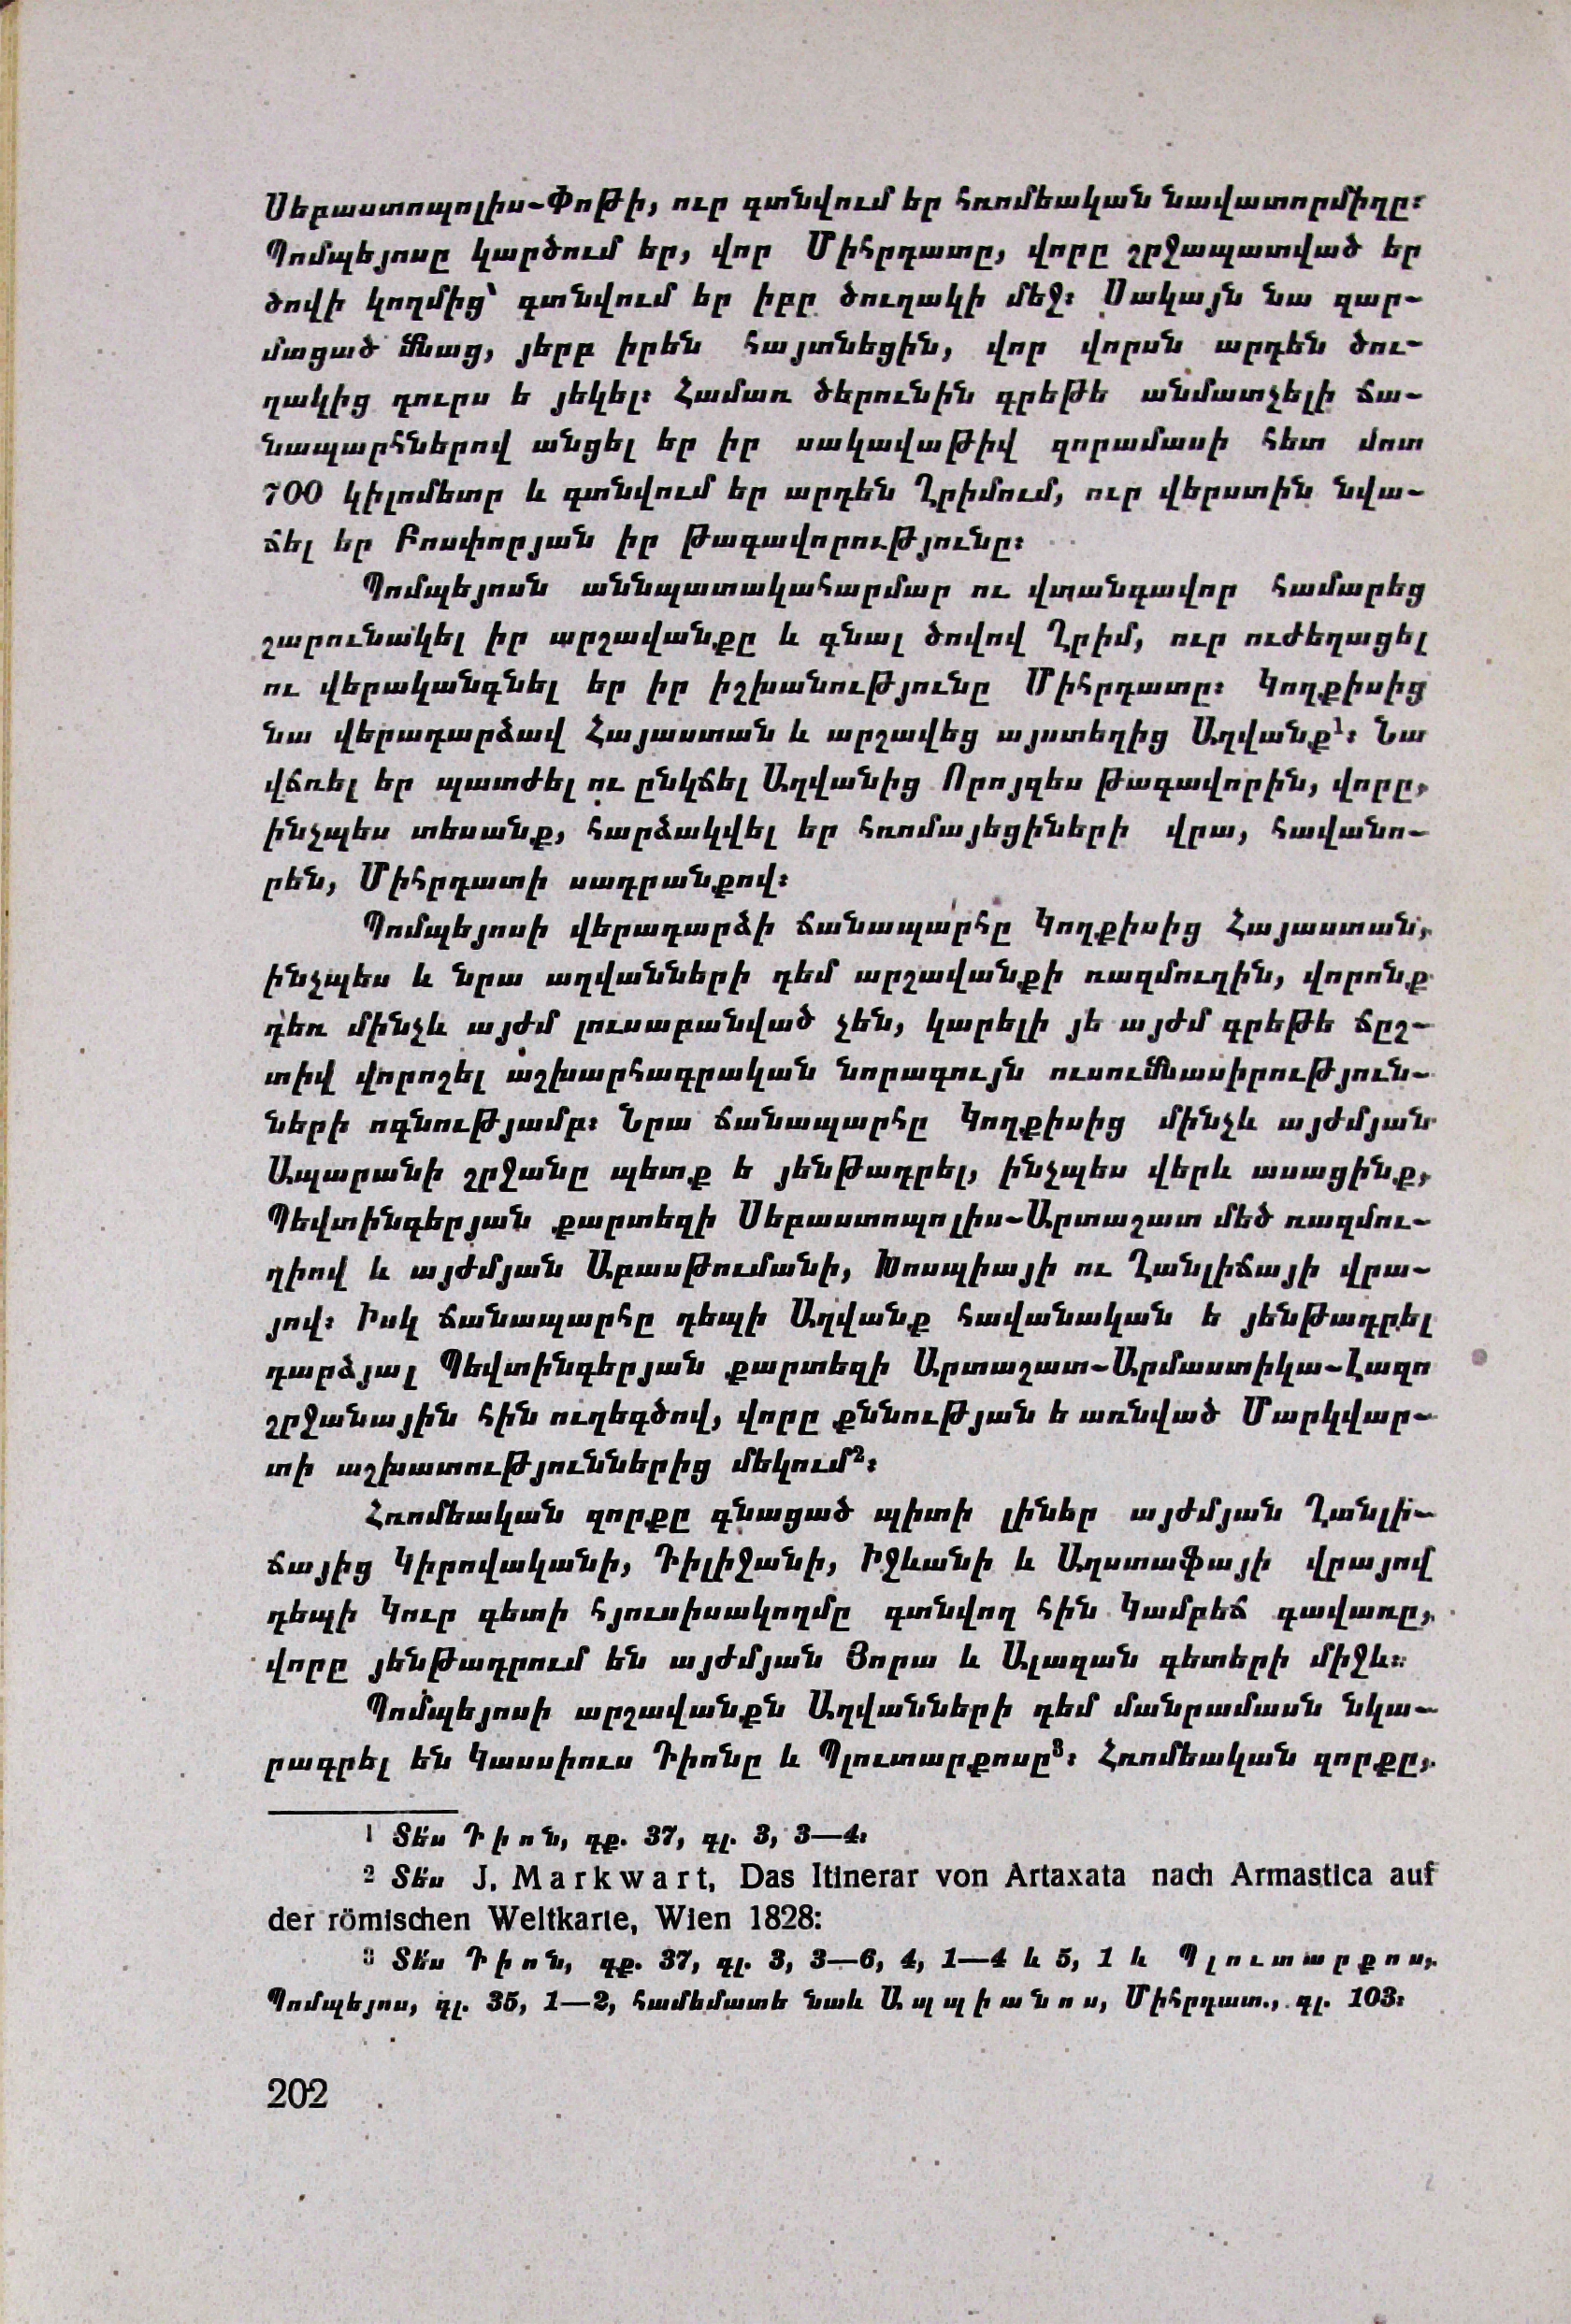 Սեբաստոպոլիս-Փոթի, ուր գտնվում եր հռոմեական նավատորմիղը։
Պոմպեյոսը կարծում եր, վոր Միհրդատը, վորը շրջապատված եր
ծովի կողմից՝ գտնվում եր իբը ծուղակի մեջ։ Սակայն նա զար-
մացած մնաց, յերբ իրեն հայտնեցին, վոր վորսն արդեն ծու-
ղակից դուրս ե յեկել։ Համառ ծերունին գրեթե անմատչելի ճա-
նապարհներով անցել եր իր սակավաթիվ զորամասի հետ մոտ
700 կիլոմետր և գտնվում եր արդեն Ղրիմում, ուր վերստին նվա-
ճել եր Բոսփորյան իր թագավորությունը։
Պոմպեյոսն աննպատակահարմար ու վտանգավոր համարեց
շարունակել իր արշավանքը և գնալ ծովով Ղրիմ, ուր ուժեղացել
ու վերականգնել եր իր իշխանությունը Միհրդատը։ Կողքիսից
նա վերադարձավ Հայաստան և արշավեց այստեղից Աղվանք¹։ Նա
վճռել եր պատժել ու ընկճել Աղվանից Որոյզես թագավորին, վորը,
ինչպես տեսանք, հարձակվել եր հռոմայեցիների վրա, հավանո-
րեն, Միհրդատի սադրանքով։
Պոմպեյոսի վերադարձի ճանապարհը Կողքիսից Հայաստան,
ինչպես և նրա աղվանների դեմ արշավանքի ռազմուղին, վորոնք
դեռ մինչև այժմ լուսաբանված չեն, կարելի յե այժմ գրեթե ճըշ-
տիվ վորոշել աշխարհագրական նորագույն ուսումնասիրություն-
ների ոգնությամբ։ Նրա ճանապարհը Կողքիսից մինչև այժմյան
Ապարանի շրջանը պետք ե յենթադրել, ինչպես վերև ասացինք,
Պեվտինգերյան քարտեզի Սեբաստոպոլիս-Արտաշատ մեծ ռազմու-
ղիով և այժմյան Աբասթումանի, Խոսպիայի ու Ղանլիճայի վրա-
յով։ Իսկ ճանապարհը դեպի Աղվանք հավանական ե յենթադրել
դարձյալ Պեվտինգերյան քարտեզի Արտաշատ-Արմաստիկա-Լազո
շրջանային հին ուղեգծով, վորը քննության ե առնված Մարկվար-
տի աշխատություններից մեկում²։
Հռոմեական զորքը գնացած պիտի լիներ այժմյան Ղանլի-
ճայից Կիրովականի, Դիլիջանի, Իջևանի և Աղստաֆայի վրայով
դեպի Կուր գետի հյուսիսակողմը գտնվող հին Կամբեճ գավառը,
վորը յենթադրում են այժմյան Յորա և Ալազան գետերի միջև։
Պոմպեյոսի արշավանքն Աղվանների դեմ մանրամասն նկա-
րագրել են Կասսիուս Դիոնը և Պլուտարքոսը³։ Հռոմեական զորքը,
1 Տե՛ս Դիոն, գք. 37, գլ. 3, 3—4։
2 Տե՛ս J. Markwart, Das Itinerar von Artaxata nach Armastica auf
der römischen Weltkarte, Wien 1828:
3 Տե՛ս Դիոն, գք. 37, գլ. 3, 3—6, 4, 1—4 և 5, 1 և Պլուտարքոս,
Պոմպեյոս, գլ. 35, 1—2, համեմատե նաև Ապպիանոս, Միհրդատ., գլ. 103։
202